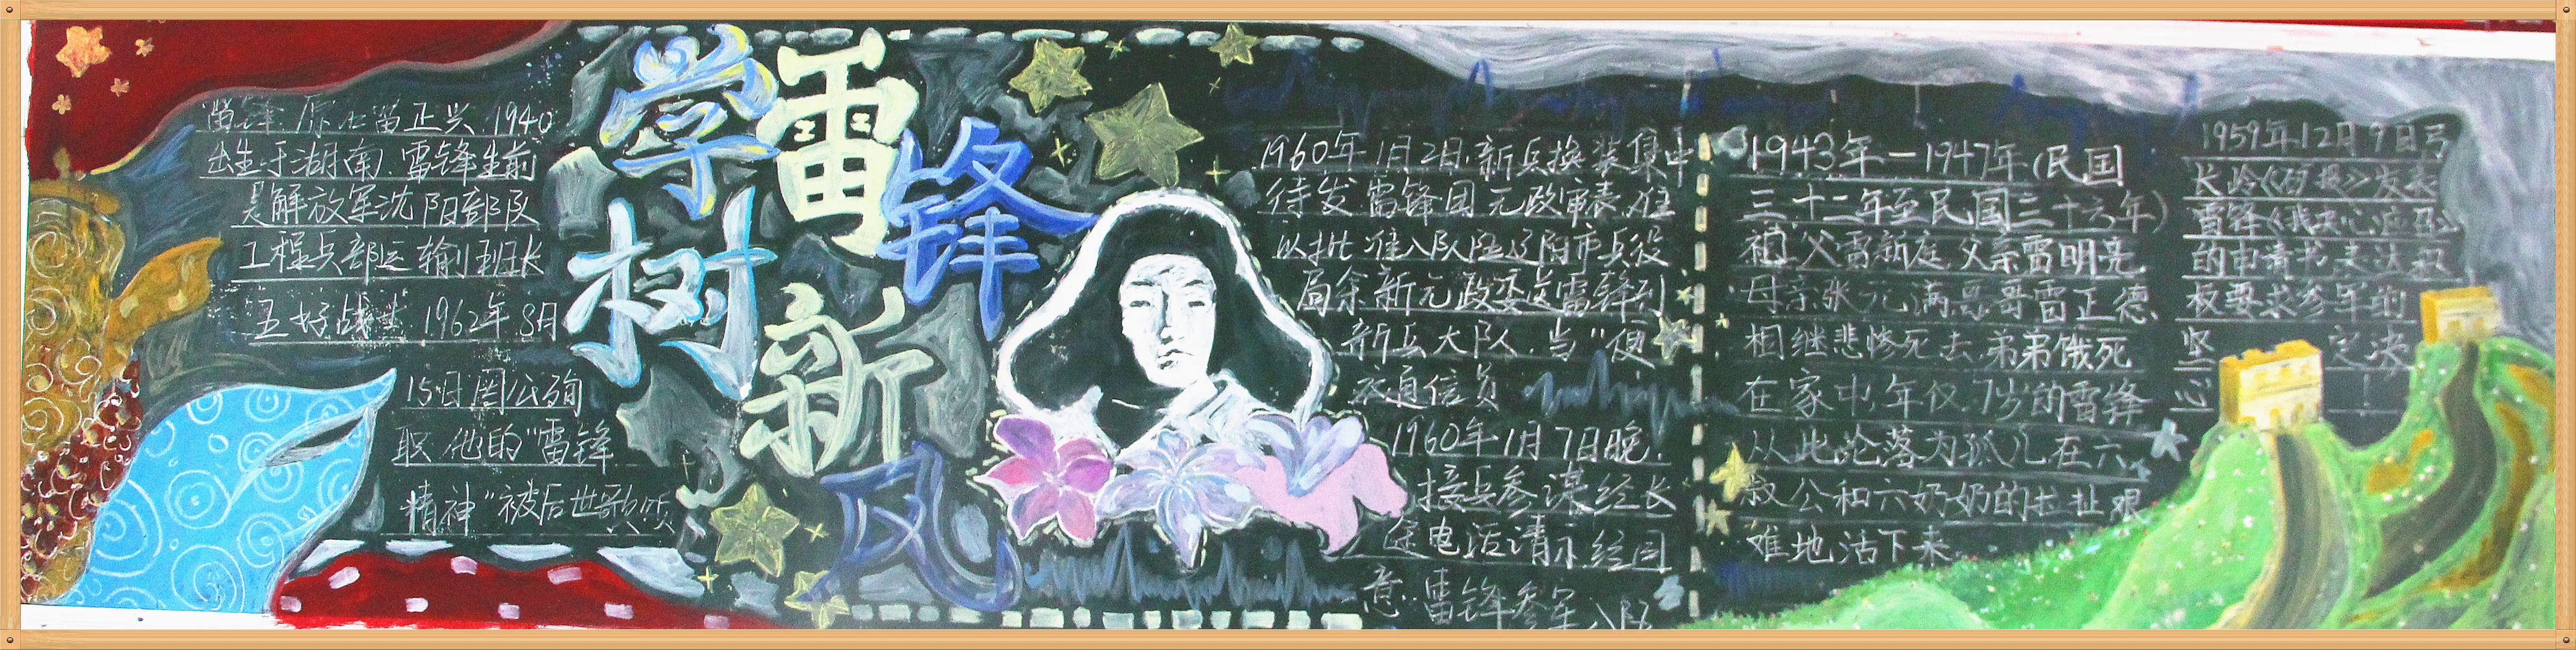 学雷锋
树新风
雷锋.原名雷正兴.1940
出生于湖南.雷锋生前
是解放军沈阳部队
工程兵部运输班班长
五好战士.1962年8月
15日因公殉
职.他的"雷锋
精神"被后世歌颂
1960年1月2日.新兵换装集中
待发.雷锋因无政审表.难
以批准入队.
新兵大队.当"便
衣通信员
1960年1月7日晚.
接兵参谋经长
途电话请示给同
意.雷锋参军入队
1943年-1947年(民国
三十二年至民国三十六年)
祖父雷新庭.父亲雷明亮
母亲张元满.哥哥雷正德.
相继悲惨死去.弟弟饿死
在家中.年仅7岁的雷锋
从此沦落为孤儿在六
叔公和六奶奶的拉扯艰
难地活下来
1959年12月9日弓
长岭《矿报》发表
雷锋《我决心应召》
的申请书表达积
极要求参军的
坚定决
心!